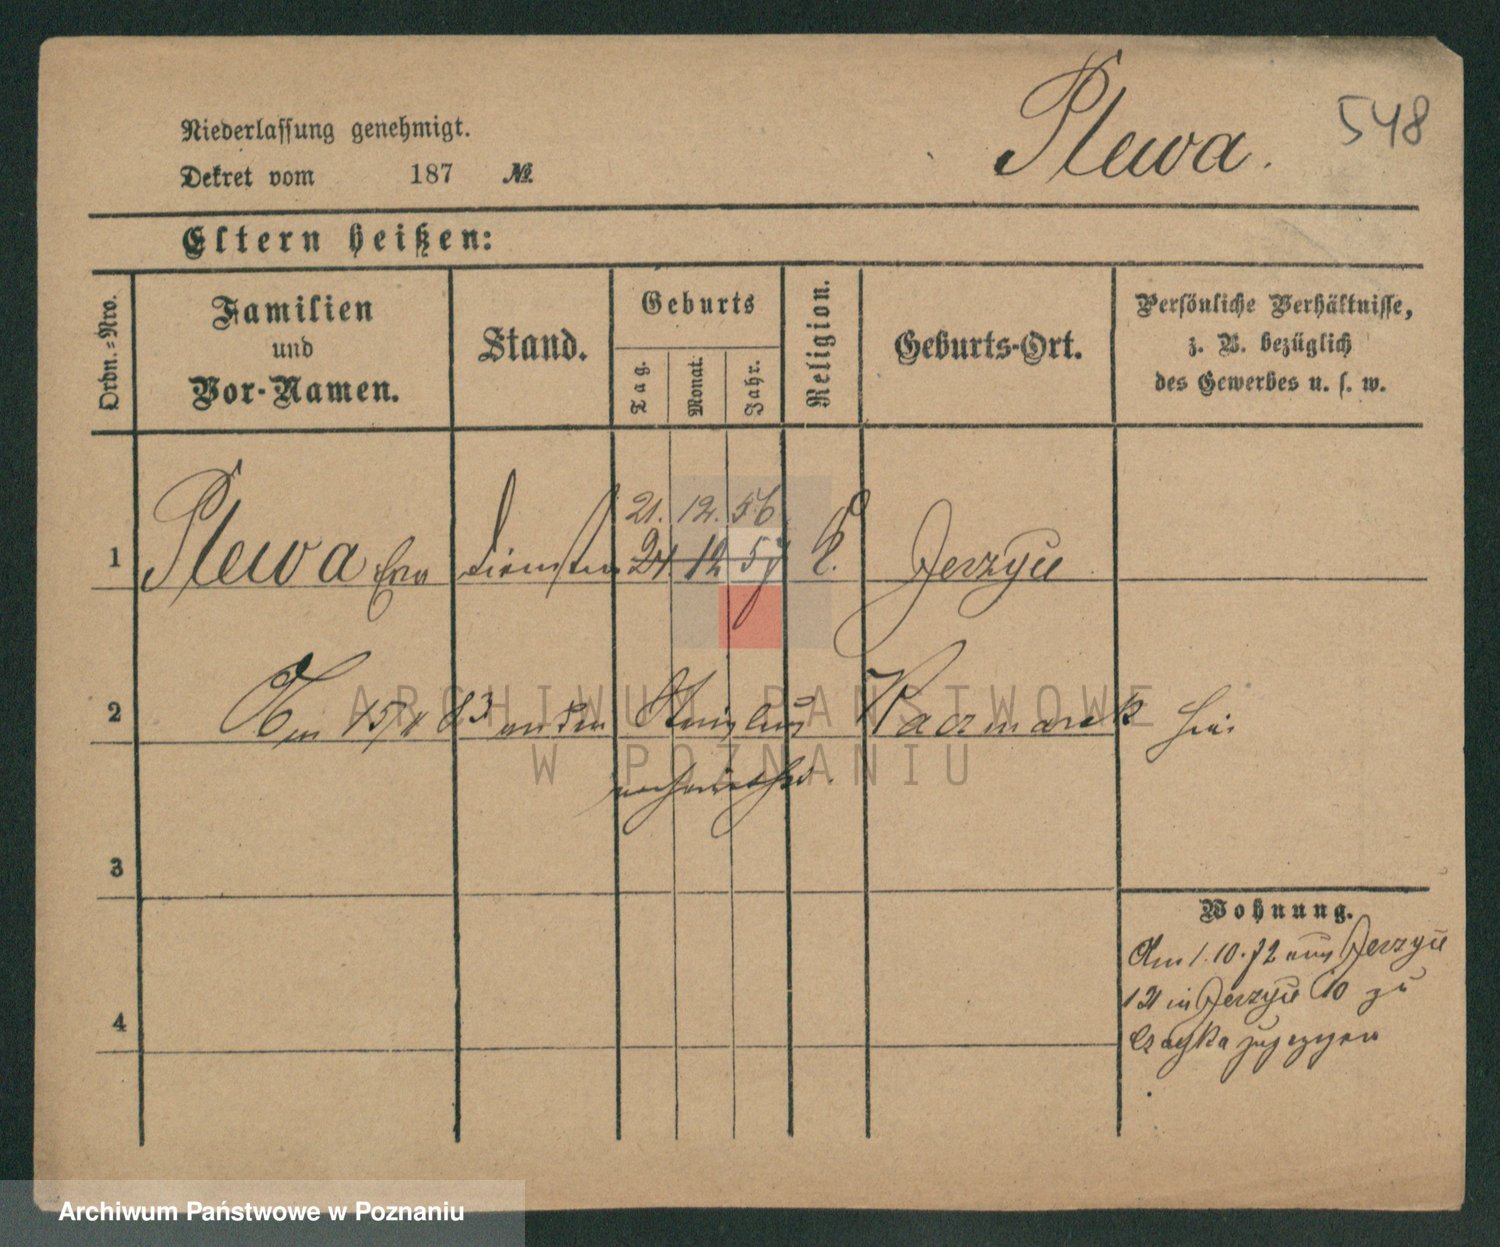 Plewa.
548
Niederlassung genehmigt.
Dekret vom 187 №.
Eltern heißen:
Ordn.-Nro.
Familien
und
Vor-Namen.
Stand.
Geburts
Tag.
Monat.
Jahr.
Religion.
Geburts-Ort.
Persönliche Verhältnisse,
z. B. bezüglich
des Gewerbes u. s. w.
21. 12. 56
1 Plewa Eva 24 12 57 Jerzyce
2 Am 83 an den Kaczmarek hier
verheirathet.
3
Wohnung.
Am 1.10.72 aus Jerzyce
in Jerzyce 10 zu
zugezogen
4
ARCHIWUM PAŃSTWOWE
W POZNANIU
Archiwum Państwowe w Poznaniu